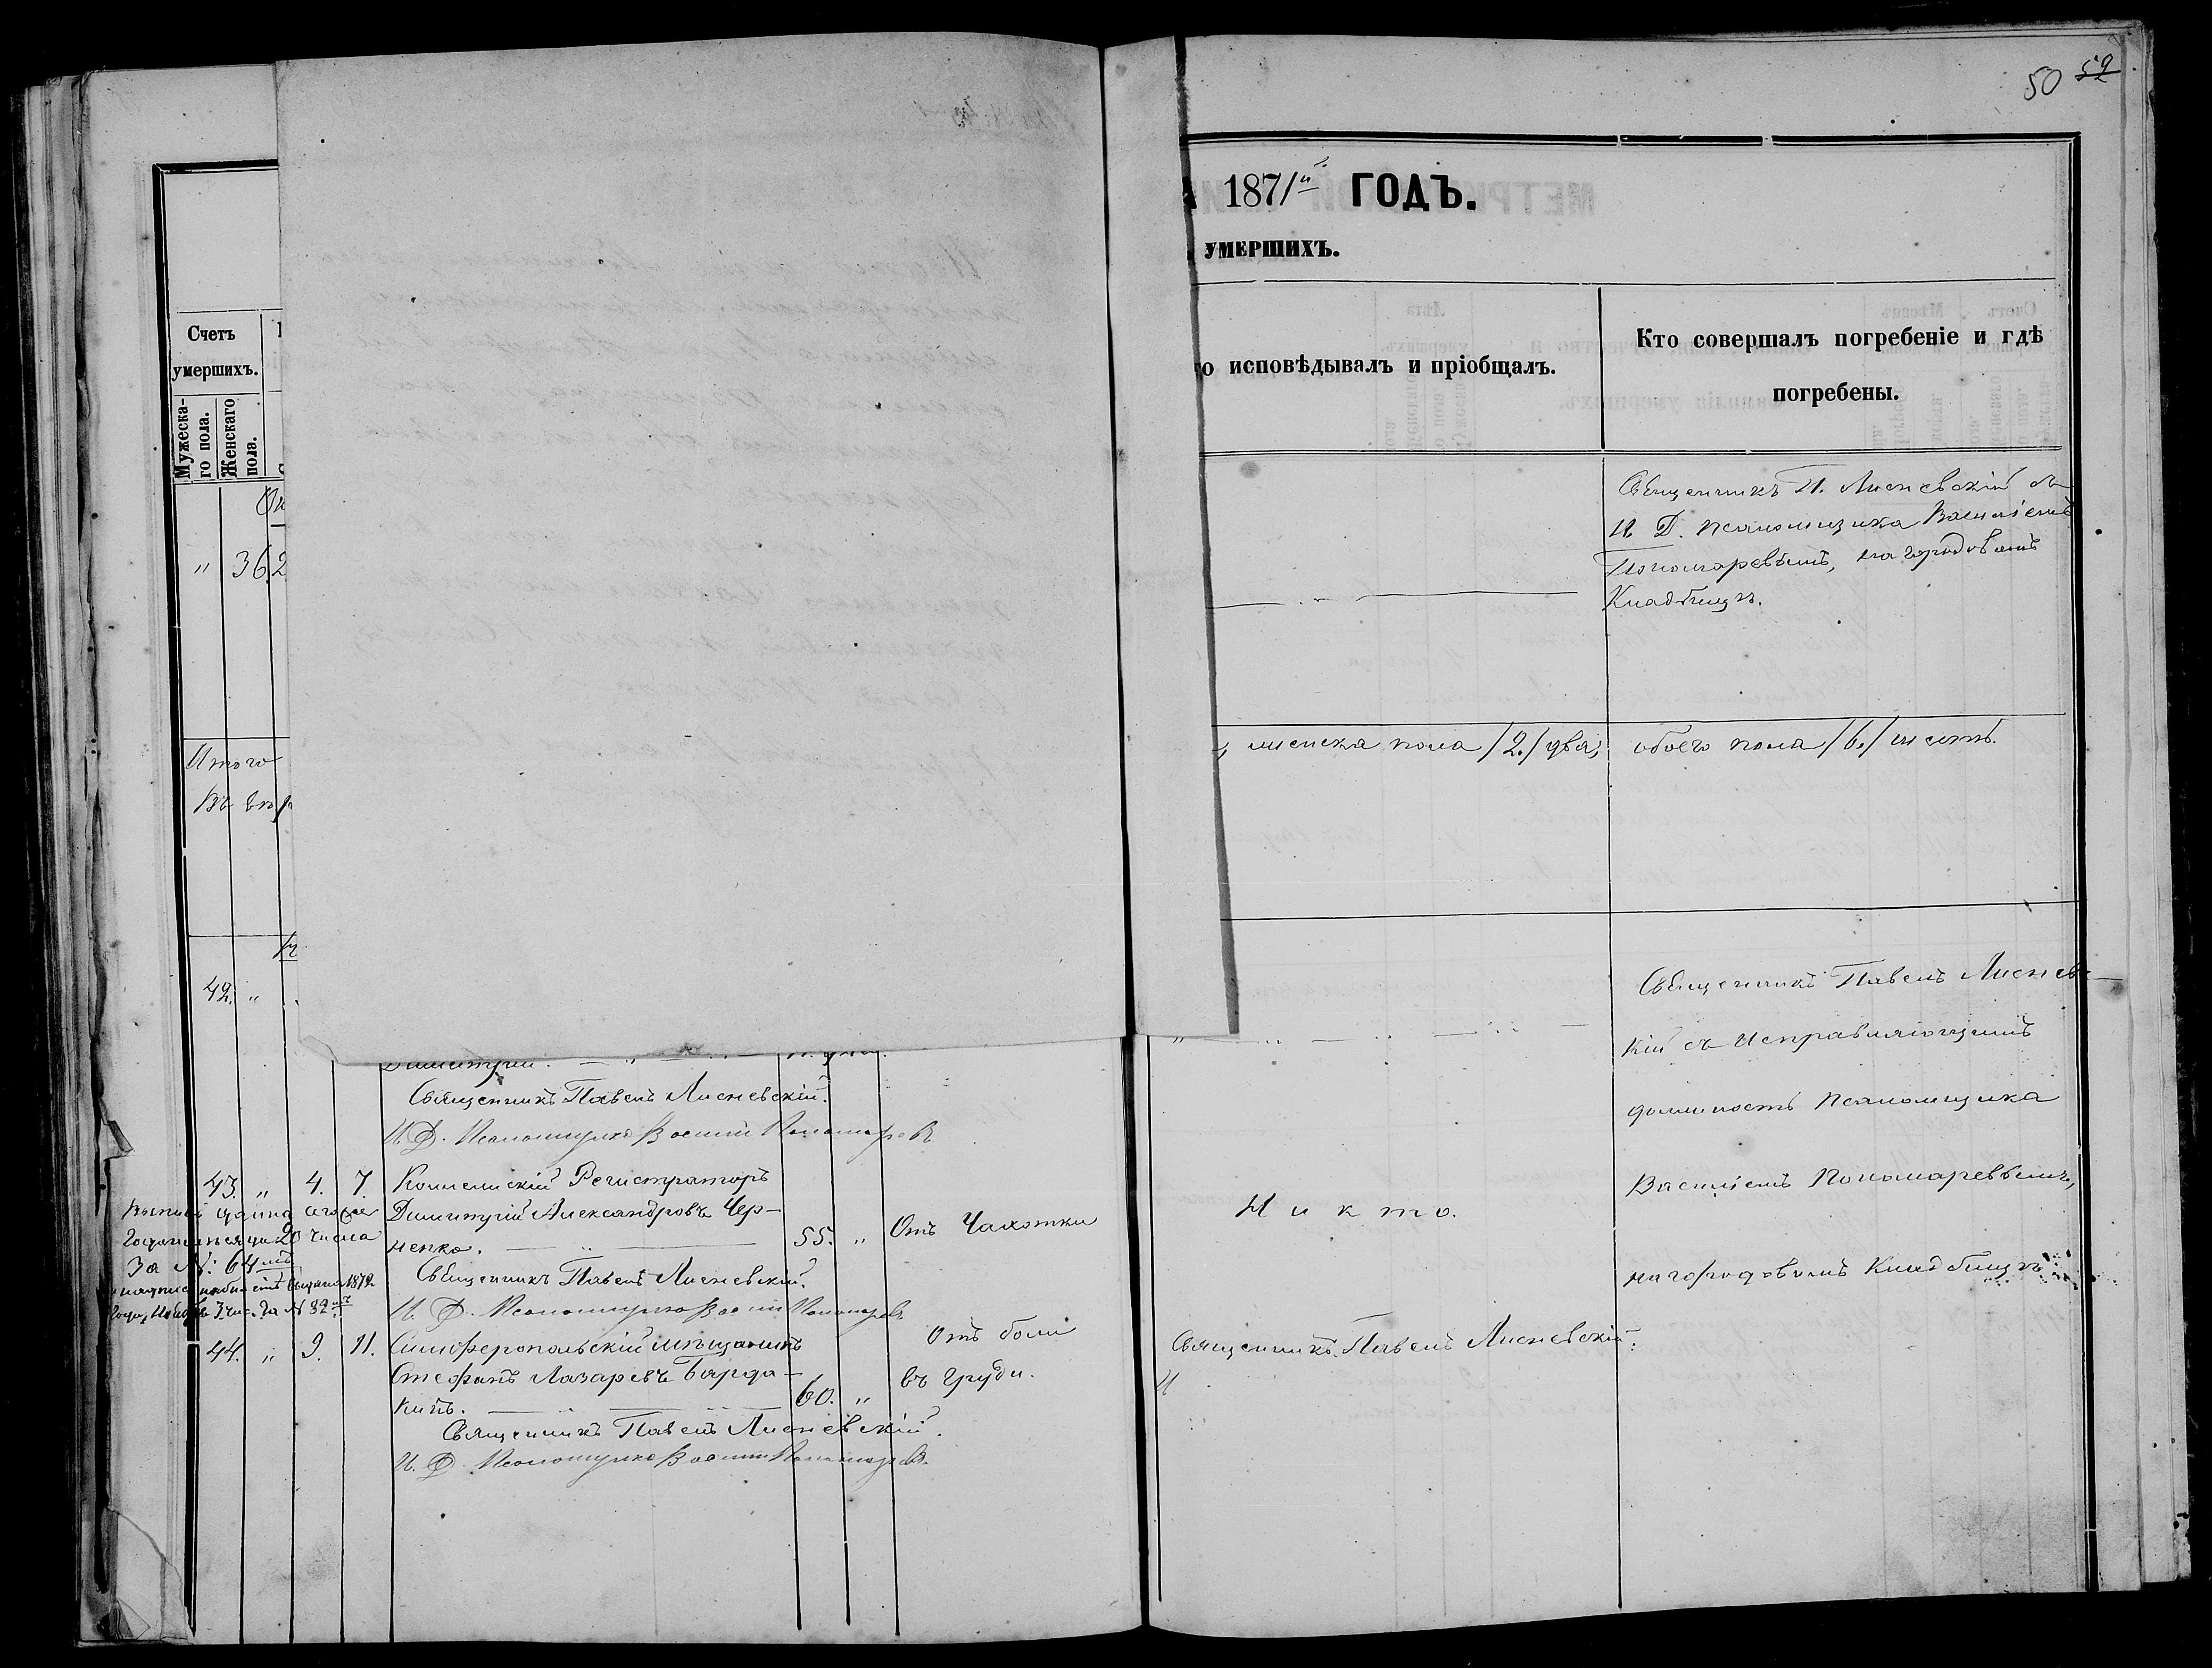 50 52
1871й ГОДЪ.
УМЕРШИХЪ.
Счетъ
умершихъ.
Мужеска-
го пола.
Женскаго
пола.
о исповѣдывалъ и пріобщалъ.
Кто совершалъ погребеніе и гдѣ
погребены.
" 36. 2
Священникъ П. Лисневскій съ
И. Д. псаломщика Василіемъ
Пономаревымъ, на городовомъ
Кладбищѣ.
Итого
женска пола /2./ два, обоего пола /6./ шесть.
42. "
Димитрій.
Священникъ Павелъ Лисневскій.
И. Д. Псаломщика Василій Пономаревъ
Священникъ Павелъ Лиснев-
кій съ Исправляющимъ
должность псаломщика
Василіемъ Пономаревымъ,
на городовомъ Кладбищѣ
43. " 4. 7. Коллежскій Регистраторъ
Димитрій Александровъ Чер-
ненко. 55. " Отъ Чахотки
Никто.
Священникъ Павелъ Лисневскій.
И. Д. Псаломщика Василій Пономаревъ
20 числа
За №: 64мъ
1872
года, Ноября 3 чис. За № 82мъ
44. " 9. 11. Симферопольскій мѣщанинъ
Стефанъ Лазаревъ Барда-
кинъ. 60. " Отъ боли
въ груди.
Священникъ Павелъ Лисневскій.
Священникъ Павелъ Лисневскій.
И. Д. Псаломщика Василій Пономаревъ
И